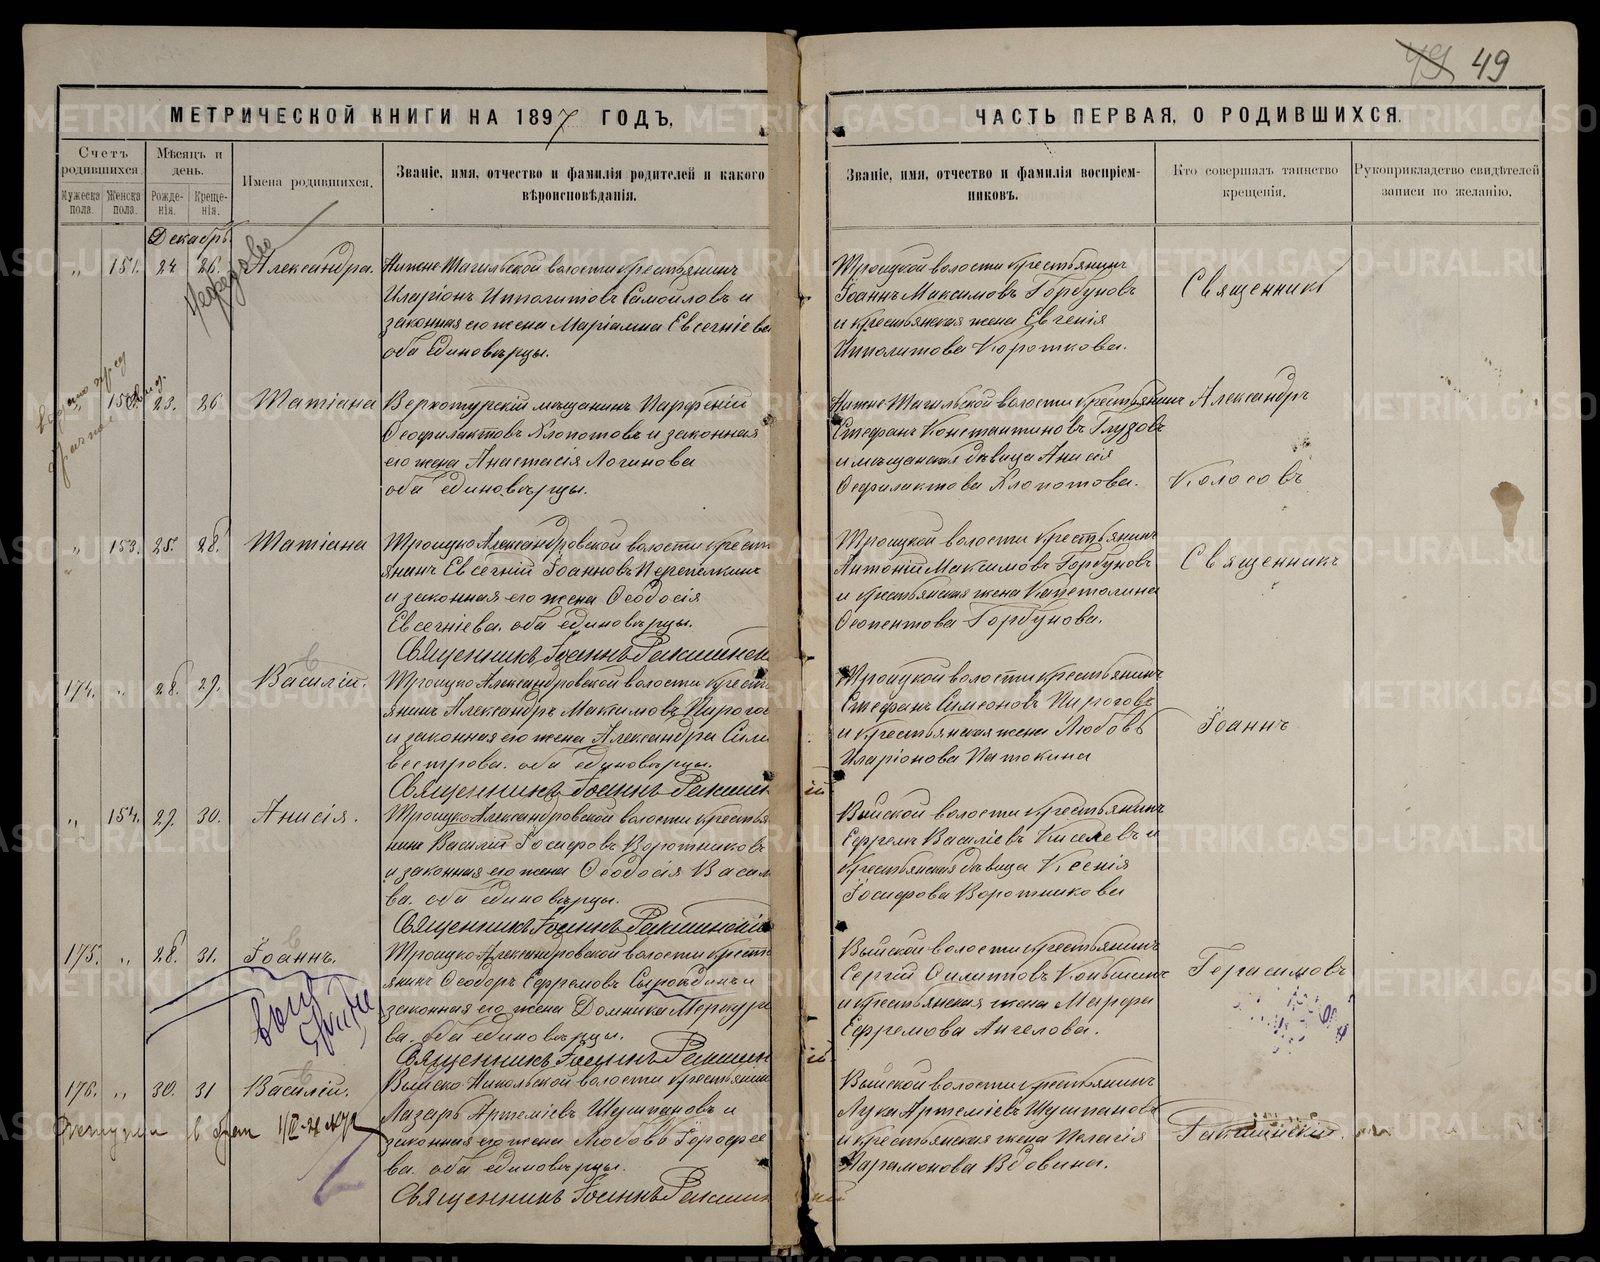 49 49
МЕТРИЧЕСКОЙ КНИГИ НА 1897 ГОДЪ,
ЧАСТЬ ПЕРВАЯ, О РОДИВШИХСЯ.
Счетъ родившихся.
Мужеска пола.
Женска пола.
Мѣсяцъ и день.
Рожденія.
Крещенія.
Имена родившихся.
Званіе, имя, отчество и фамилія родителей и какого
вѣроисповѣданія.
Званіе, имя, отчество и фамилія воспріем-
никовъ.
Кто совершалъ таинство
крещенія.
Рукоприкладство свидѣтелей
записи по желанію.
Декабрь
„ 151. 24 26. Александра. Нижне Тагильской волости крестьянинъ
Иларіонъ Ипполитовъ Самойловъ и
законная его жена Маріамна Евсегніева
оба единовѣрцы.
Троицкой волости крестьянинъ
Іоаннъ Максимовъ Горбуновъ
и крестьянская жена Евгенія
Ипполитова Короткова.
Священникъ
23. 26 Татіана Верхотурскій мѣщанинъ Парфеній
Ѳеофилактовъ Хлопотовъ и законная
его жена Анастасія Логинова
оба единовѣрцы.
Нижне Тагильской волости крестьянинъ
Стефанъ Константиновъ Глузовъ
и мѣщанская дѣвица Анисія
Ѳеофилактова Хлопотова.
Александръ
Колосовъ
„ 153. 25. 28. Татіана Троицко Александровской волости кресть
янинъ Евсегній Іоанновъ Перепелкинъ
и законная его жена Ѳеодосія
Евсегніева. оба единовѣрцы.
Священникъ Іоаннъ
Троицкой волости крестьянинъ
Антоній Максимовъ Горбуновъ
и крестьянская жена Капетолина
Горбунова.
Священникъ
174. „ 28. 29. Василій. Троицко Александровской волости кресть
янинъ Александръ Максимовъ Пирогов
и законная его жена Александра Сили
вестрова. оба единовѣрцы.
Священникъ Іоаннъ
Троицкой волости крестьянинъ
Стефанъ Симеоновъ Пироговъ
и крестьянская жена Любовь
Иларіонова Патокина
Іоаннъ
„ 154. 29. 30. Анисія. Троицко Александровской волости крестья
нинъ Василій Іосифовъ Воротниковъ
и законная его жена Ѳеодосія Васил
ва. оба единовѣрцы.
Священникъ Іоаннъ
Выйской волости крестьянинъ
Ефремъ Василіевъ Киселевъ и
крестьянская дѣвица Ксенія
Іосифова Воротникова
175. „ 28. 31. Іоаннъ. Троицко Александровской волости кресть
янинъ Ѳеодоръ Ефремовъ и
законная его жена Домника Меркурі
ва. оба единовѣрцы.
Священникъ Іоаннъ
Выйской волости крестьянинъ
Сергій Филипповъ
и крестьянская жена Марфа
Ефремова Ангелова.
Герасимовъ
176. „ 30. 31 Василій. Выйско Никольской волости крестьянинъ
Лазарь Артеміевъ Шушпановъ и
законная его жена Любовь Дорофее
ва. оба единовѣрцы.
Священникъ Іоаннъ
Выйской волости крестьянинъ
Лука Артеміевъ Шушпановъ
и крестьянская жена Пелагія
Парамонова Вдовина.
METRIKI.GASO-URAL.RU